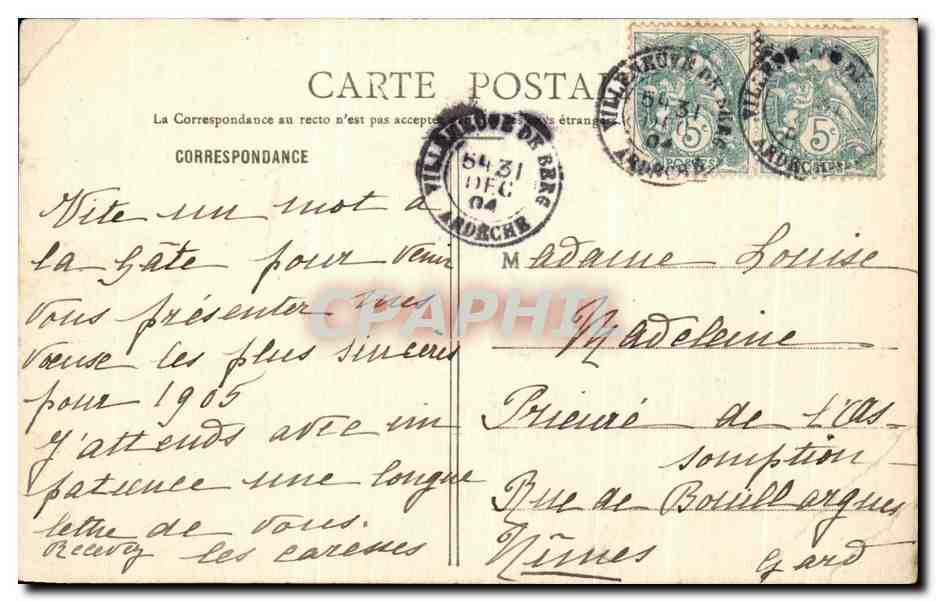 CARTE POSTALE
La Correspondance au recto n'est pas acceptée
CORRESPONDANCE
VILLENEUVE DE BERG
54 31
DEC
04
ARDÈCHE
VILLENEUVE DE BERG
54 31
DEC
04
ARDÈCHE
5c
POSTES
VILLENEUVE DE
ARDÈCHE
5c
Vite un mot à
la hâte pour venir
vous présenter mes
voeuse les plus sincères
pour 1905
J'attends avec im
patience une longue
lettre de vous.
Recevez les caresses
Madame Louise
Madeleine
Prieuré de l'As-
somption
Rue de Bouillargues
Nîmes Gard
CPAPHIL